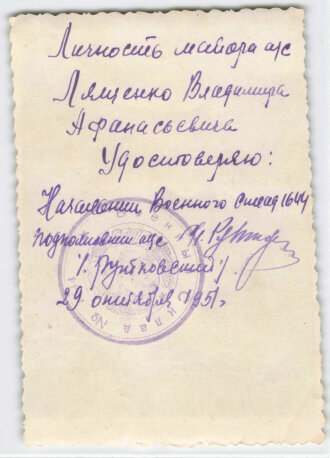 Личность майора а/с
Лященко Владимира
Афанасьевича
Удостоверяю:
Начальник Военного Склад 1644
подполковник а/с
/. Рутковский /.
29 октября 1951 г
Военный
склад №